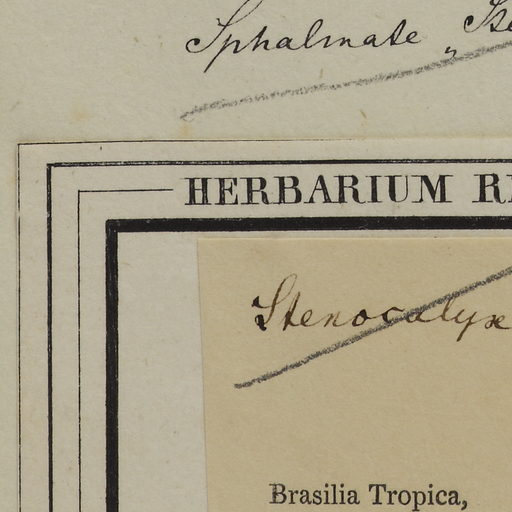 Sphalmate „
HERBARIUM
Stenocalyx
Brasilia Tropica,